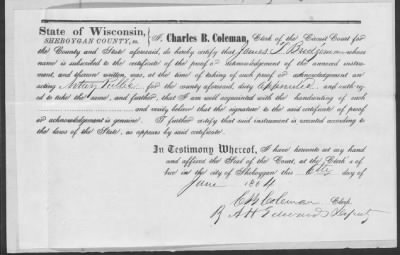 State of Wisconsin,
SHEBOYGAN COUNTY, ss.
I, Charles B. Coleman, Clerk of the Circuit Court for
the County and State aforesaid, do hereby certify that James T. whose
name is subscribed to the certificate of the proof or acknowledgement of the annexed instru-
ment, and thereon written, was, at the time of taking of such proof or acknowledgement an
acting Notary Public for the county aforesaid, duty and author-
ized to take the same, and further, that I am well acquainted with the handwriting of such
and verily believe that the signature to the said certificate of proof
or acknowledgement is genuine. I further certify that said instrument is executed according to
the laws of the State, as appears by said certificate.
In Testimony Whereof, I have hereunto set my hand
and affixed the Seal of the Court, at the Clerk's of-
fice in the city of Sheboygan this day of
June 1864
C B Coleman Clerk,
By A H Edwards Deputy